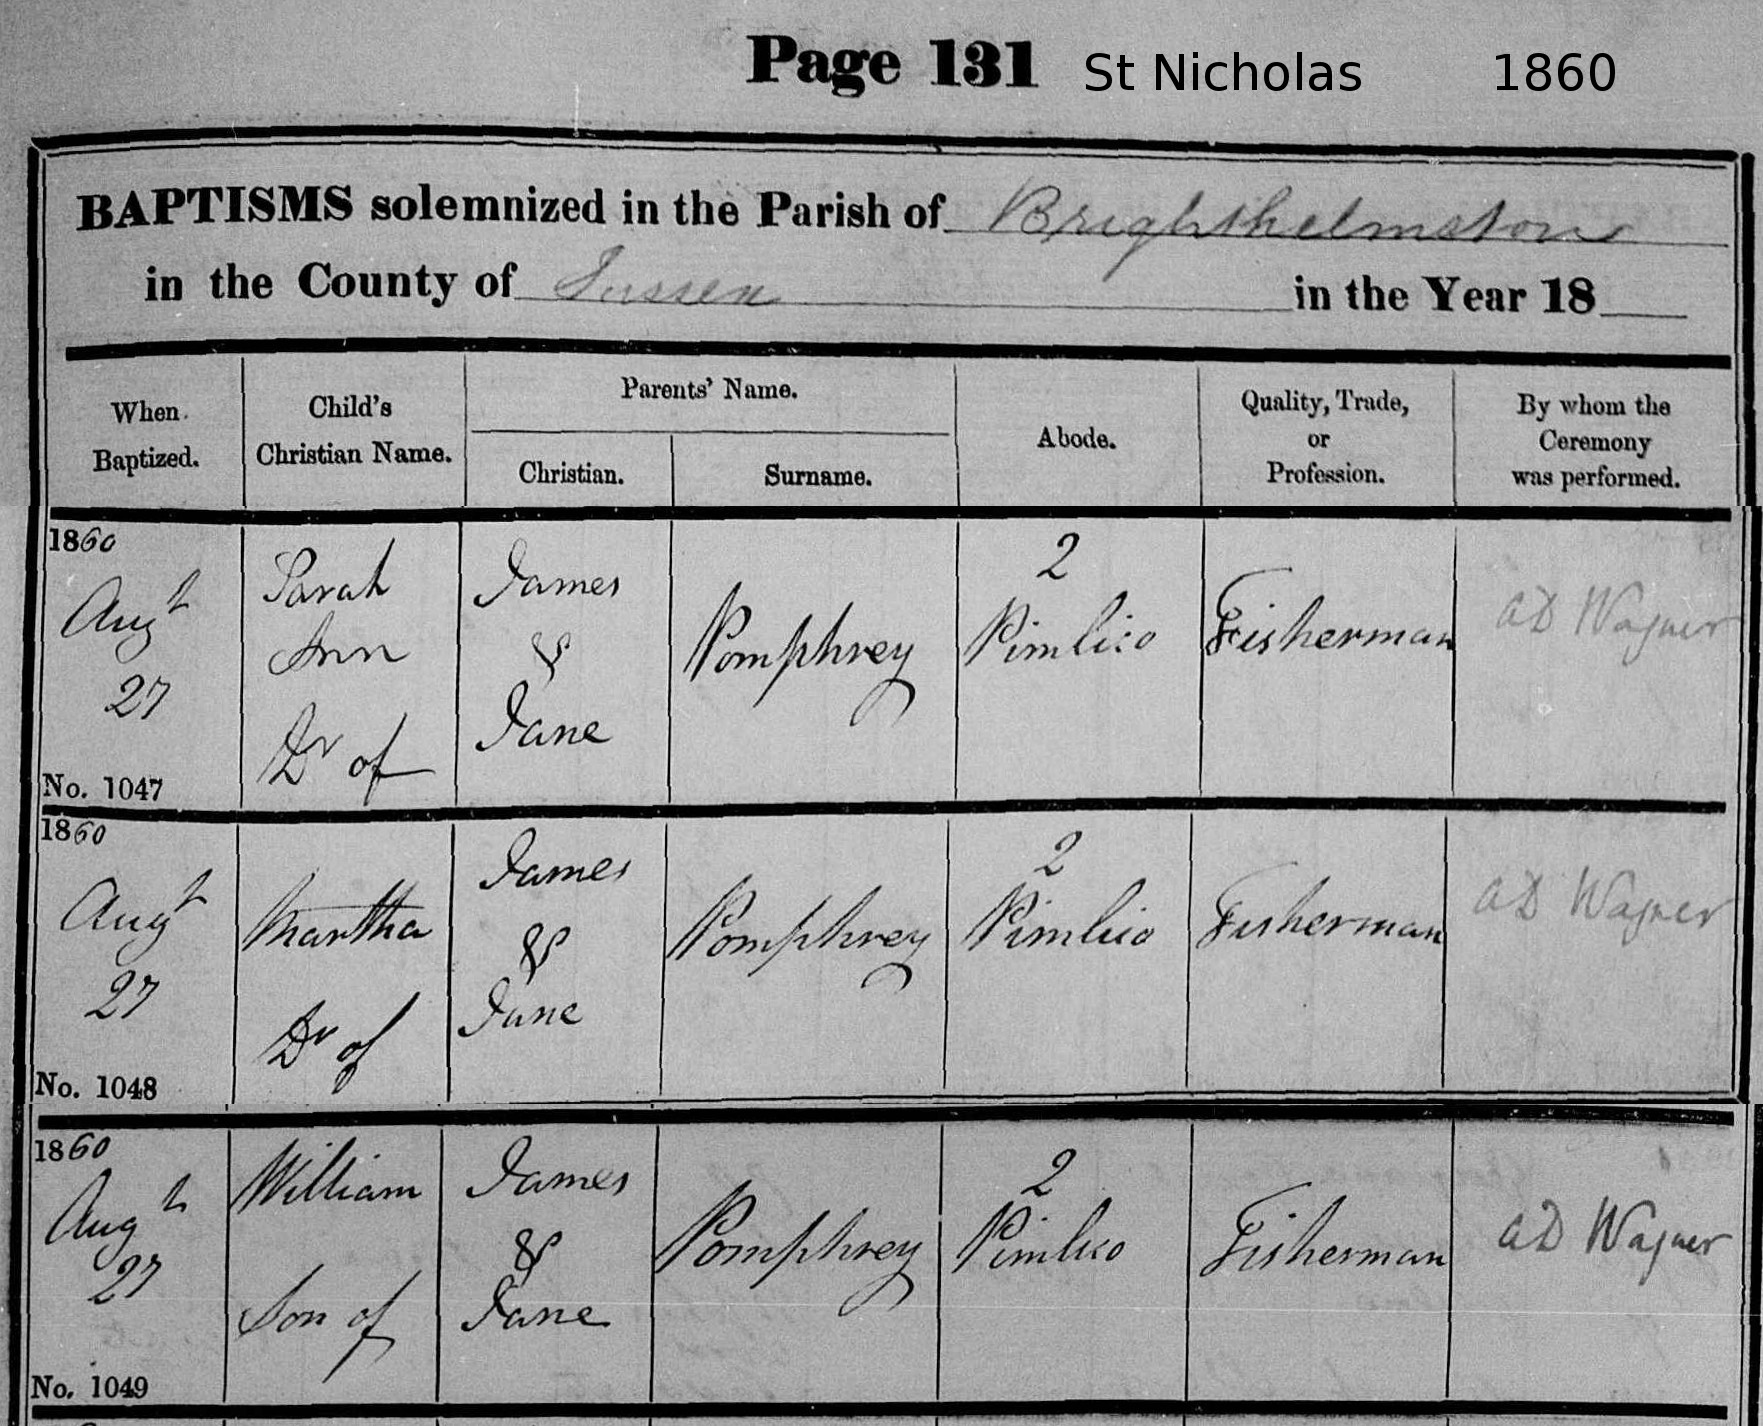 Page 131 St Nicholas 1860
BAPTISMS solemnized in the Parish of Brighthelmston
in the County of Sussex in the Year 18
When Baptized.
Child's Christian Name.
Parents' Name.
Christian.
Surname.
Abode.
Quality, Trade, or Profession.
By whom the Ceremony was performed.
1860
Augt
27
No. 1047
Sarah
Ann
Dr of
James
&
Jane
Pomphrey
2
Pimlico
Fisherman
AD Wagner
1860
Augt
27
No. 1048
Martha
Dr of
James
&
Jane
Pomphrey
2
Pimlico
Fisherman
AD Wagner
1860
Augt
27
No. 1049
William
Son of
James
&
Jane
Pomphrey
2
Pimlico
Fisherman
AD Wagner